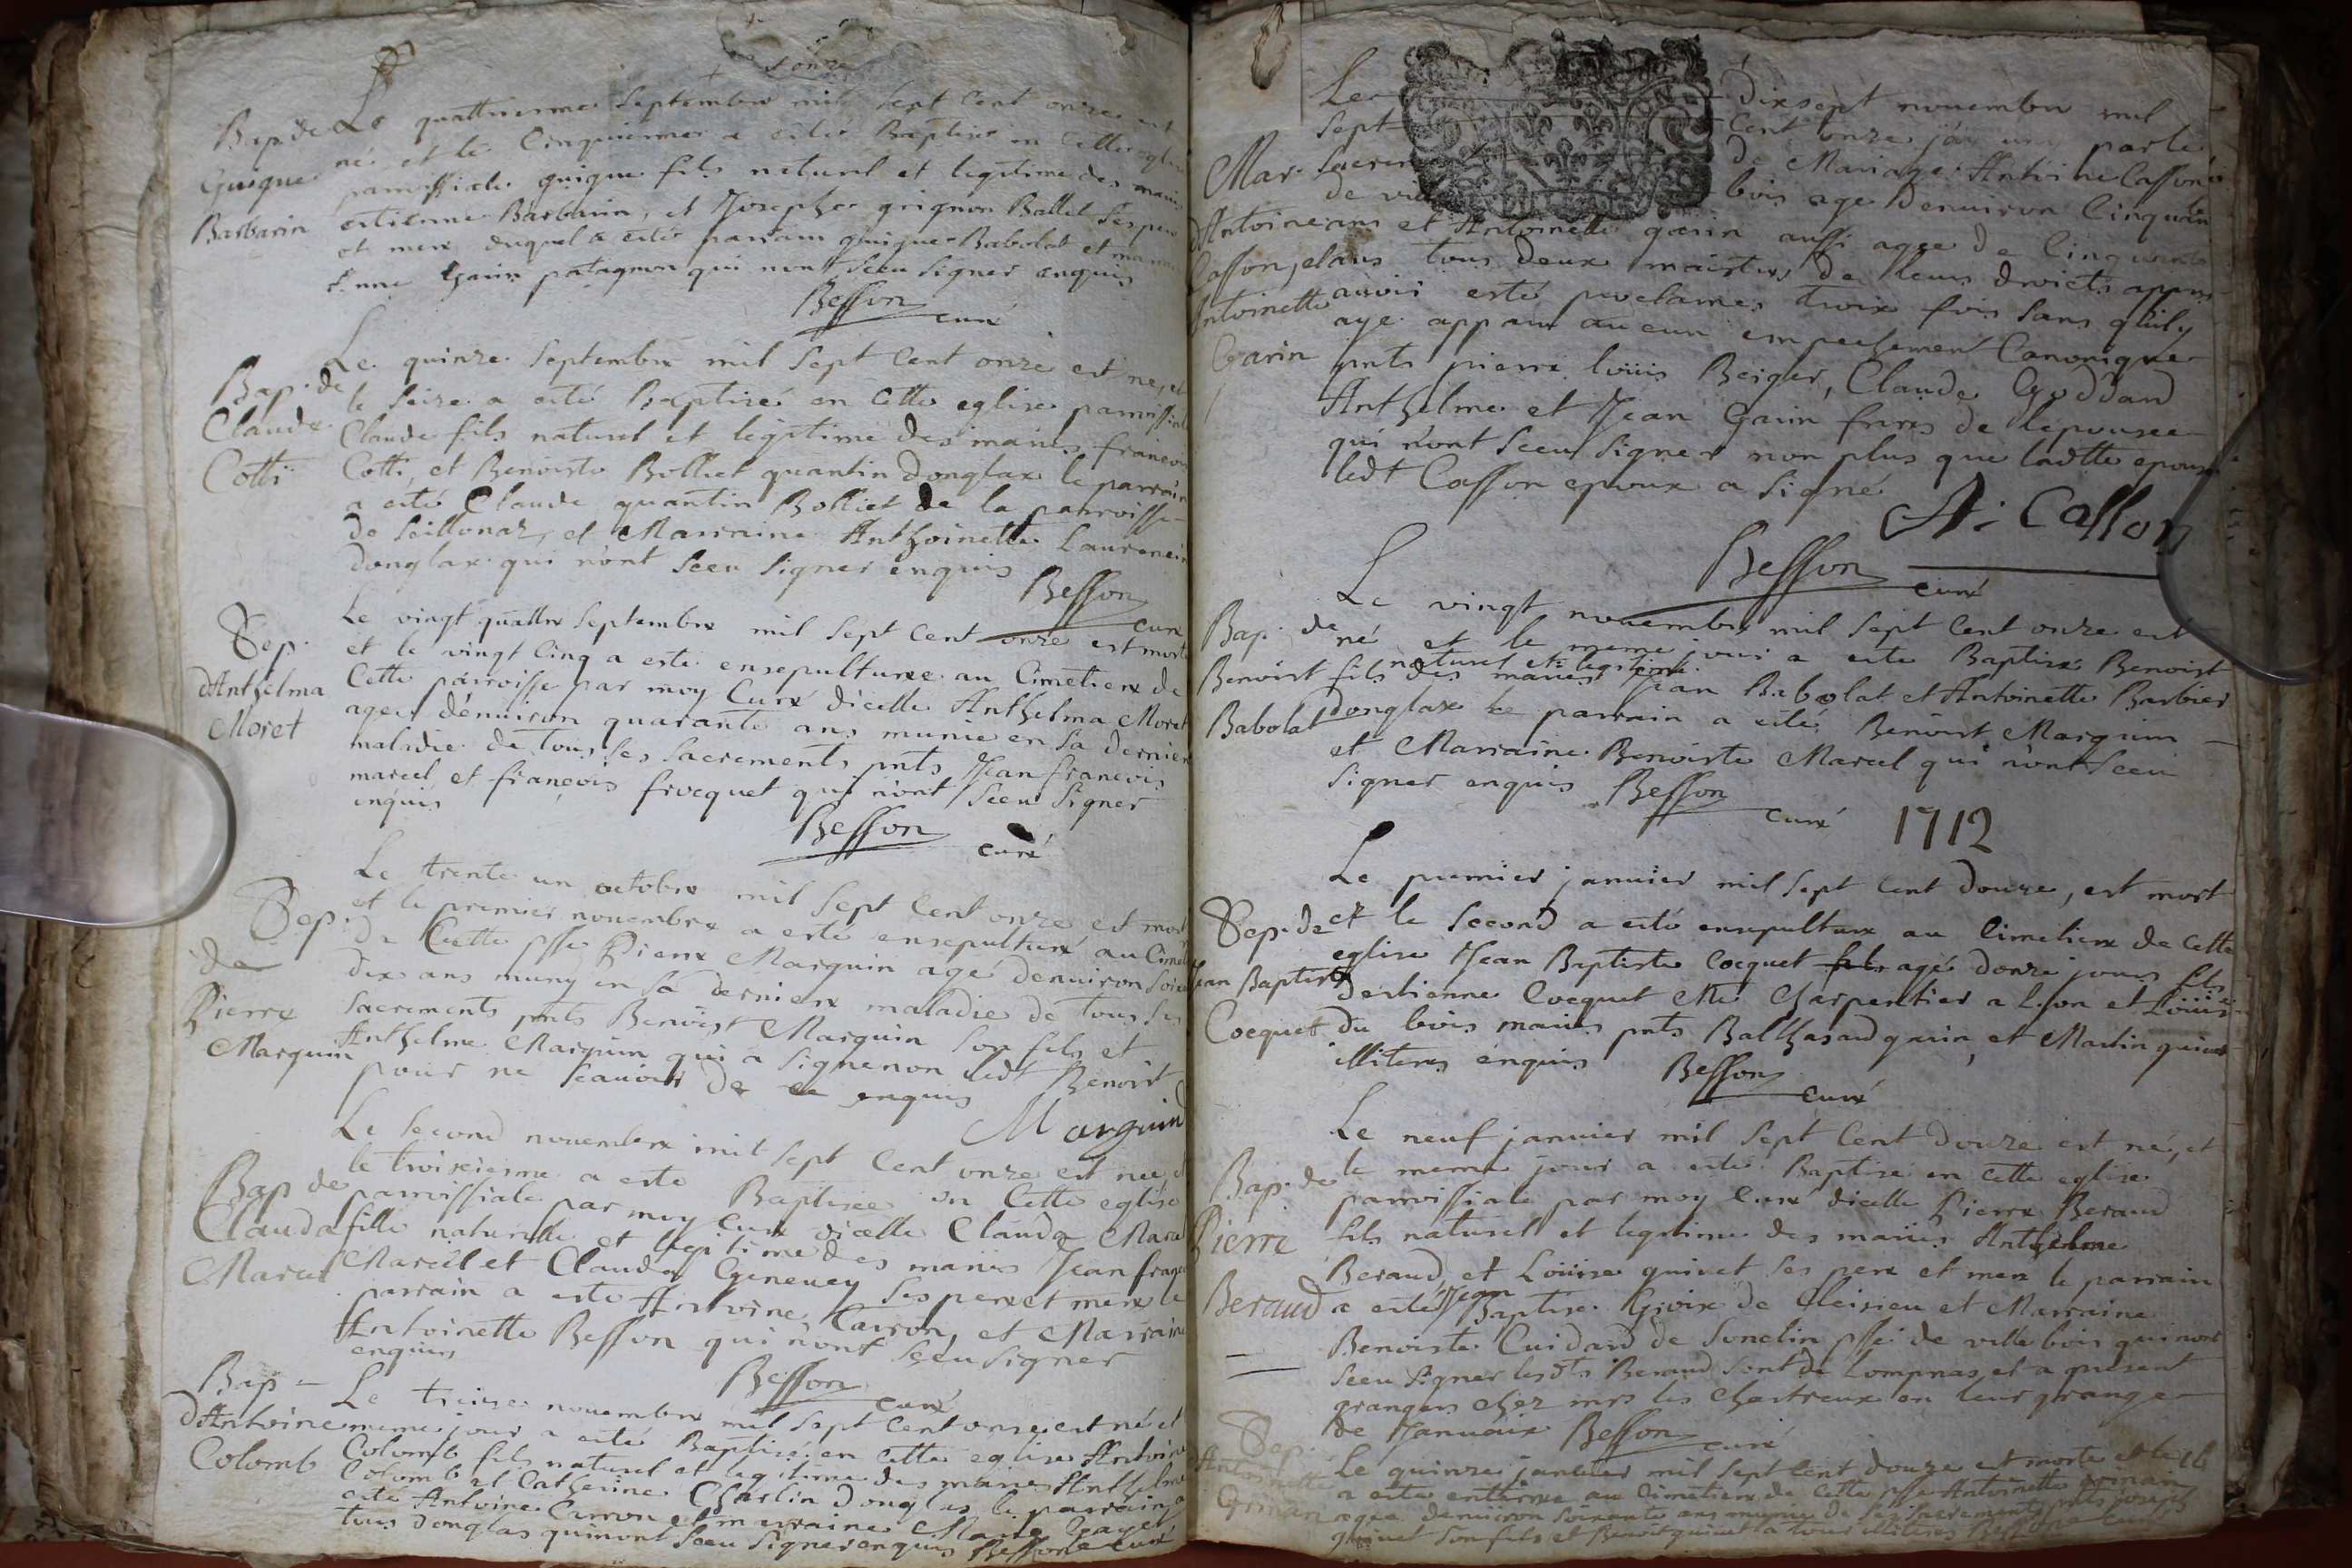 onze
Bap. de Le quattriesme Septembre mil Sept Cent onze est
né et le Cinquiesme a esté Baptisé en Cette eglise
Guigue parroissiale guigue fils naturel et legitime des mariés
Barbarin estienne Barbarin, et Josephe grignon Ballet Ses pere
et mere duquel a esté parrain guigue Babolat et marraine
Garin patagnon qui n'ont Sceu Signer enquis
Besson curé
Le quinze Septembre mil Sept Cent onze est né, et
Bap. de le Seize a esté Baptisé en Cette eglise parroissiale
Claude Claude fils naturel et legitime des mariés francois
Cotti Cotti, et Benoiste Bolliet quantin Donglax le parrain
a esté Claude quantin Bolliet de la parroisse
de Seillonaz, et Marraine Anthoinette Laurencin
Donglax qui n'ont Sceu Signer enquis
Besson curé
Le vingt quattre Septembre mil Sept Cent onze est morte
Sep. et le vingt Cinq a esté ensepulturée au Cimetiere de
d'Anthelma Cette parroisse par moy Curé d'icelle Anthelma Moret
Moret agée d'enuiron quarante ans munie en Sa derniere
maladie de tous les Sacrements pnts Jean francois
marcel et françois frocquet qui n'ont Sceu Signer
enquis
Besson curé
Le trente un octobre mil Sept Cent onze est mort
Sep. et le premier nouembre a esté ensepulturé au Cimetiere
de de Cette psse Pierre Marguin agé d'enuiron Soixante
dix ans muny en Sa derniere maladie de tous Ses
Pierre Sacrements pnts Benoist Marguin Son fils et
Marguin Anthelme Marguin qui a Signé non ledt Benoist
pour ne Scauoir de ce enquis
Marguin
Le Second nouembre mil Sept Cent onze est née, et
le troisiesme a esté Baptisee en Cette eglise
Bap de parroissiale par moy Curé d'icelle Clauda Marcel
Clauda fille naturelle et legitime des mariés Jean francois
Marcel Marcel et Clauda Geneuey Ses pere et mere le
parrain a esté Antoine Carron, et Marraine
Antoinette Besson qui n'ont Sceu Signer
enquis
Besson curé
Bap - Le treize nouembre mil Sept Cent onze est né et
d'Antoine meme jour a esté Baptisé en Cette eglise Antoine
Colomb Colomb fils naturel et legitime des mariés Anthelme
Colomb et Catherine Charlin donglas le parrain a
esté Antoine Carron et marraine Marie
tous donglas qui n'ont Sceu Signer enquis Besson Curé
Le dixsept nouembre mil
Sept Cent onze j'ay uny par le
Mar. Sacrem de Mariage Antoine Casson
de vil bois agé d'enuiron Cinquante
d'Antoine ans et Antoinette garin aussi agée de Cinquante
Casson, et ans tous Deux maistres de leurs droicts apprés
Antoinette auoir esté proclamés trois fois Sans qu'il y
aye apparu aucun empechement Canonique
Garin pnts pierre loüis Beiger, Claude Goddard
Anthelme et Jean Garin freres de l'epousee
qui n'ont Sceu Signer non plus que ladtte epouse
ledt Casson epoux a Signé
A: Casson
Besson curé
Le vingt nouembre mil Sept Cent onze est
Bap. de né et le meme jour a esté Baptisé Benoist
naturel et legitime
Benoist fils des mariés Jean Babolat et Antoinette Barbier
Babolat donglax Le parrain a esté Benoist Marguin
et Marraine Benoiste Marcel qui n'ont Sceu
Signer enquis Besson curé
1712
Le premier januier mil Sept Cent douze, est mort
Sep. de et le Second a esté ensepulturé au Cimetiere de Cette
eglise Jean Baptiste Cocquet fils agé d'onze jours fils
Jean Baptiste d'estienne Cocquet Me Charpentier a Lion et Loüise
Cocquet du bois mariés pnts Balthasard garin, et Martin guinet
illiterés enquis
Besson curé
Le neuf januier mil Sept Cent douze est né, et
Bap. de le meme jour a esté Baptisé en Cette eglise
parroissiale par moy Curé d'icelle Pierre Beraud
Pierre fils naturel et legitime des mariés Anthelme
Beraud, et Loüise guinet Ses pere et mere le parrain
Jean
Beraud a esté Baptiste Groix de Cleisieu et Marraine
Benoiste Cuidard de Sonclin psse de ville bois qui n'ont
Sceu Signer lesdts Beraud Sont de Lompnas et a present
grangers chez mrs les Chartreux en leur grange
de Januaix Besson curé
Sep. Le quinze januier mil Sept Cent douze est morte et le 16
Antoinette a esté enterrée au Cimetiere de Cette psse Antoinette Grinan
Grinan agée d'enuiron Soixante ans munie de Ses Sacrements pnts joseph
guinet Son fils et Benoit guinet tous illiteres Besson Curé